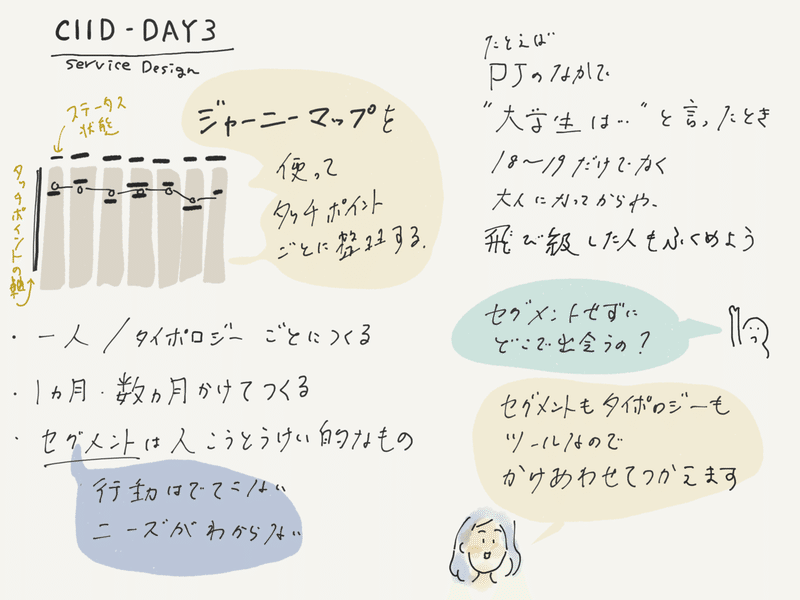 CIID - DAY3
Service Design
ステータス
状態
タッチポイントの軸
ジャーニーマップを
使って
タッチポイント
ごとに整理する.
・一人/タイポロジーごとにつくる
・1ヵ月・数ヵ月かけてつくる
・セグメントは人こうとうけい的なもの
行動はでてこない
ニーズがわからない
たとえば
PJのなかで
"大学生は…"と言ったとき
18〜19だけでなく
大人になってからや、
飛び級した人もふくめよう
セグメントせずに
どこで出会うの?
セグメントもタイポロジーも
ツールなので
かけあわせてつかえます